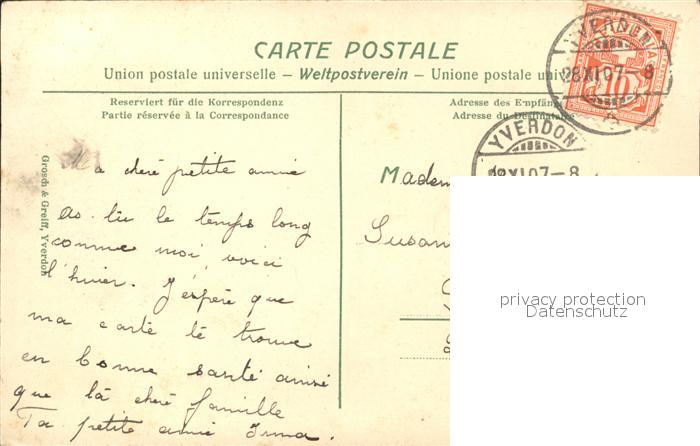 CARTE POSTALE
Union postale universelle – Weltpostverein – Unione postale uni
Reserviert für die Korrespondenz
Partie réservée à la Correspondance
Adresse des Empfäng
Adresse du Destinataire
YVERDON
28.XI.07–8
10
YVERDON
XI.07–8
Grosch & Greiff, Yverdon
Ma cheré petite amie
as. tu le temps long
comme moi, voici
l'hiver. J'éspére que
ma carte te trouve
en bonne santé ainsi
que ta cheré famille
Ta petite amie Irma.
Madem
Susan
privacy protection
Datenschutz